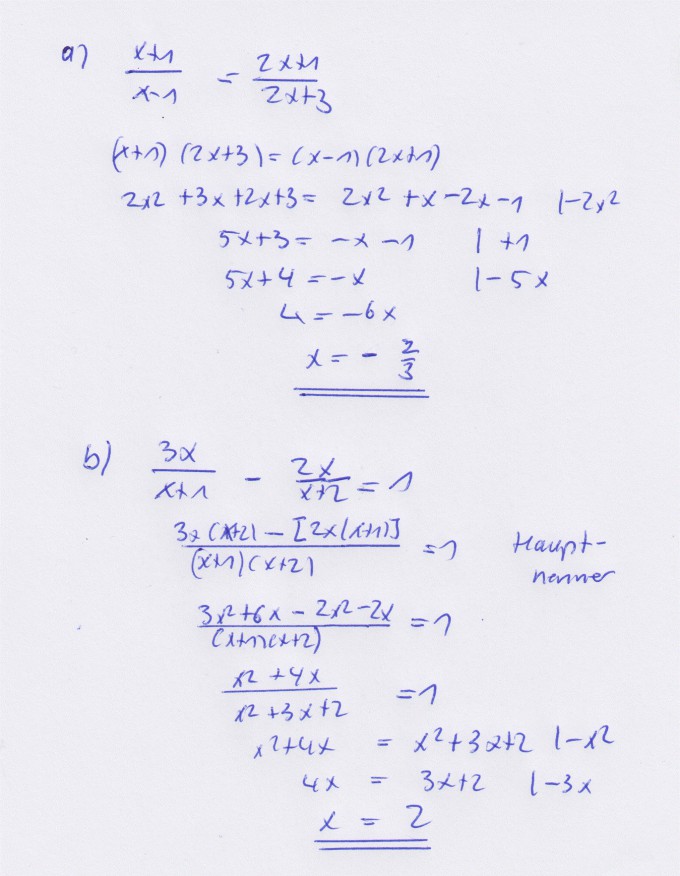 a) (x+1)/(x-1) = (2x+1)/(2x+3)
(x+1) (2x+3) = (x-1) (2x+1)
2x² +3x +2x+3 = 2x² +x -2x -1 |-2x²
5x+3 = -x -1 | +1
5x+4 = -x |-5x
4 = -6x
x = - 2/3
b) 3x/(x+1) - 2x/(x+2) = 1
(3x(x+2) - [2x(x+1)])/((x+1)(x+2)) = 1 Haupt-
nenner
(3x²+6x - 2x²-2x)/((x+1)(x+2)) = 1
(x² +4x)/(x² +3x+2) = 1
x²+4x = x²+3x+2 |-x²
4x = 3x+2 |-3x
x = 2